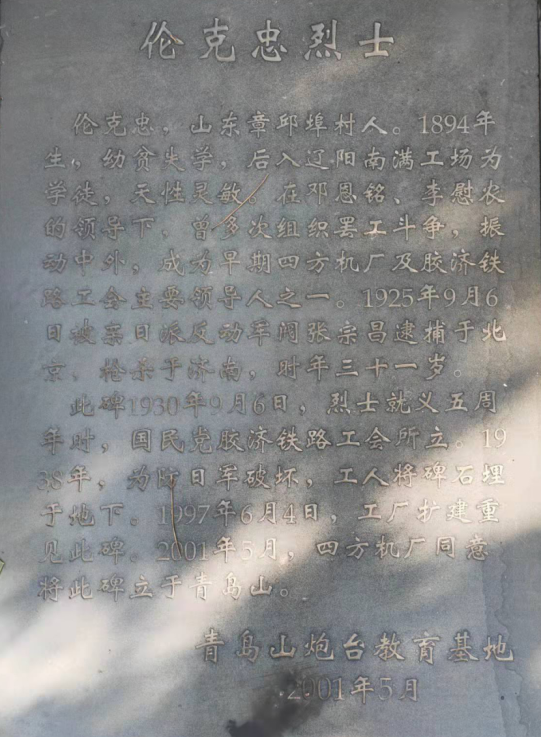 伦克忠烈士
伦克忠，山东章邱埠村人。1894年
生，幼贫失学，后入辽阳南满工场为
学徒，天性灵敏。在邓恩铭、李慰农
的领导下，曾多次组织罢工斗争，振
动中外，成为早期四方机厂及胶济铁
路工会主要领导人之一。1925年9月6
日被亲日派反动军阀张宗昌逮捕于北
京，枪杀于济南，时年三十一岁。
此碑1930年9月6日，烈士就义五周
年时，国民党胶济铁路工会所立。19
38年，为防日军破坏，工人将碑石埋
于地下。1997年6月4日，工厂扩建重
见此碑。2001年5月，四方机厂同意
将此碑立于青岛山。
青岛山炮台教育基地
2001年5月